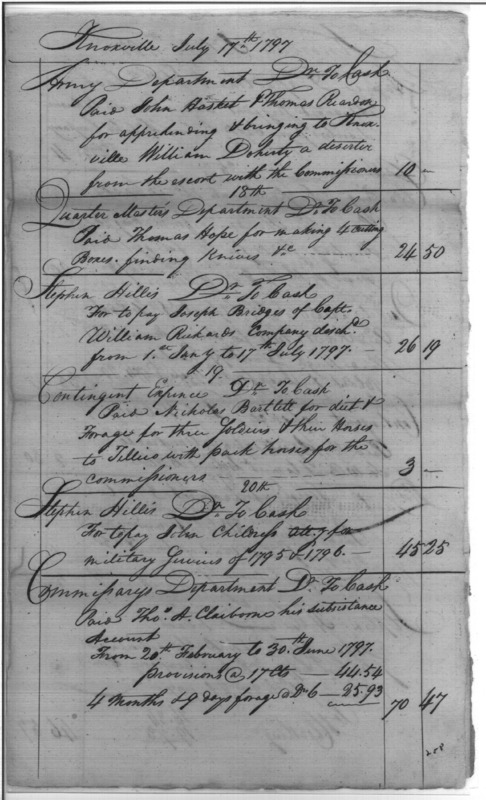 Knoxville July 17th 1797
Army Department Dr. To Cash
Paid John Basket & Thomas Reardon
for apprehending & bringing to Knox-
ville William Doherty a deserter
from the escort with the Commissioners 10 —
18th
Quarter Masters Department Dr. To Cash
Paid Thomas Hope for making 4 cutting
Boxes. finding Knives &c 24 50
Stephen Hillis Dr. To Cash
For to pay Joseph Bridges of Capt.
William Rickards Company disch.d
from 1.st Jany to 17th July 1797. — 26 19
19.
Contingent Expence Dr. To Cash
Paid Nicholas Bartlett for diet &
Forage for three Soldiers & their Horses
to Tellico with pack horses for the
commissioners 3 —
20th
Stephen Hillis Dr. To Cash
For to pay John Childress
military Services of 1795 & 1796. — 45 25
Commissarys Department Dr. To Cash
Paid Tho.s A. Claiborne his subsistance
Account
From 20th February to 30.th June 1797.
provisions @ 17 Cts — 44.54
4 Months & 9 days forage @ Drs 6 — 25.93 70 47